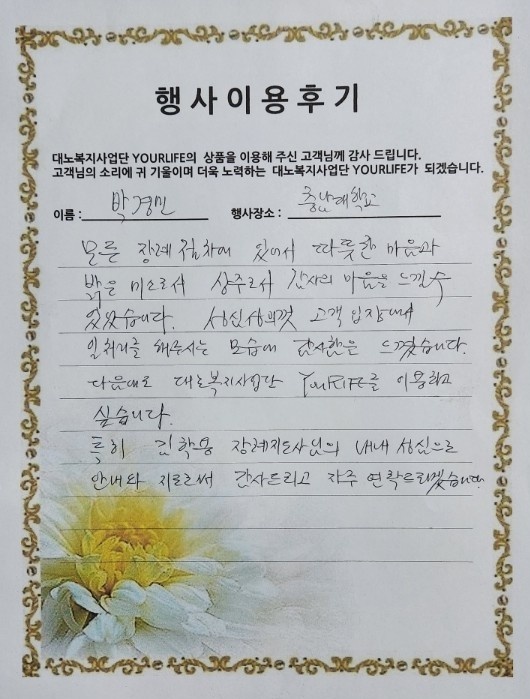 행사이용후기
대노복지사업단 YOURLIFE의 상품을 이용해 주신 고객님께 감사 드립니다.
고객님의 소리에 귀 기울이며 더욱 노력하는 대노복지사업단 YOURLIFE가 되겠습니다.
이름 : 박경민 행사장소 : 충남대학교
모든 장례절차에 있어서 따뜻한 마음과
밝은 미소로서 상주로서 감사의 마음을 느낄수
있었습니다. 성심성의껏 고객 입장에서
일처리를 해주시는 모습에 감사함은 느꼈습니다.
다음에도 대노복지사업단 YouRlIFE를 이용하고
싶습니다.
특히 김학용 장례지도사님의 내내 성심으로
안내와 지도로써 감사드리고 자주 연락드리겠습니다.